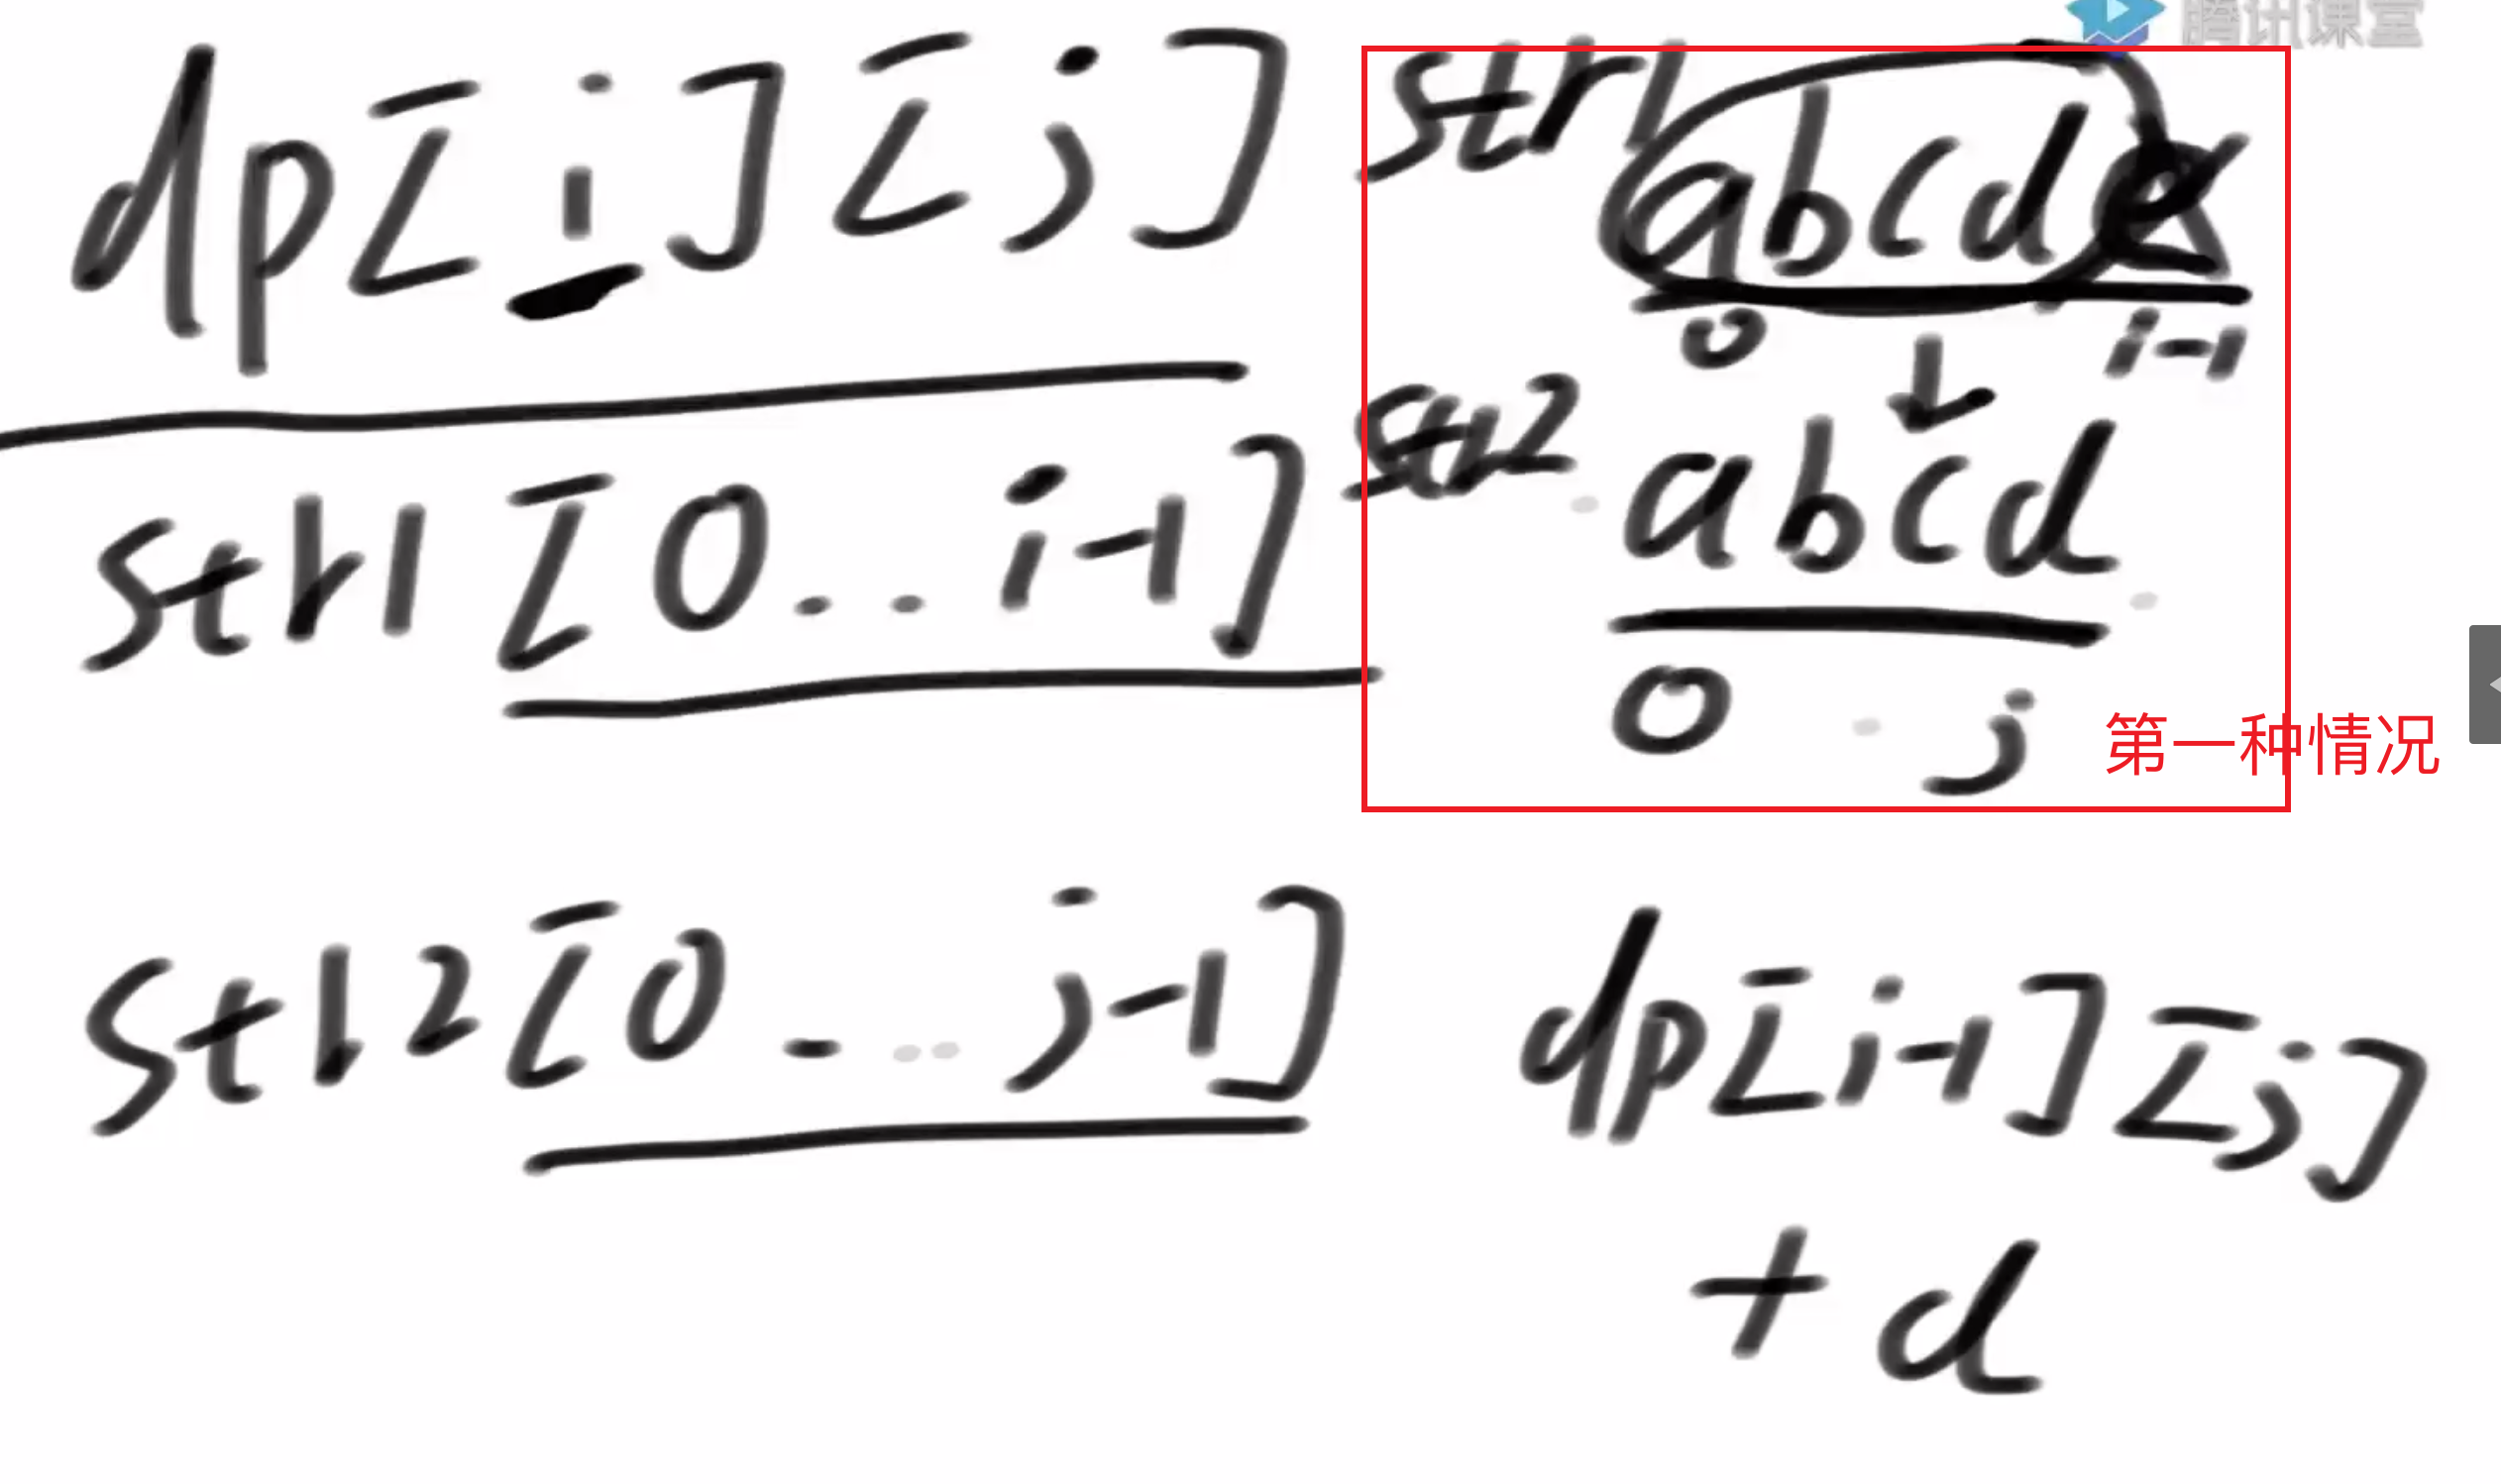 腾讯课堂
dp[i][j]
str1[0...i-1]
str2[0...j-1]
str1
abcde
0 i-1
str2
abcd
0 j
第一种情况
dp[i-1][j]
+d